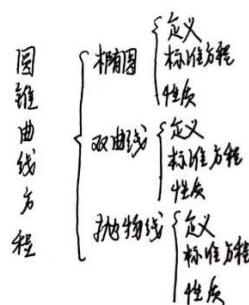 圆锥曲线方程
椭圆
定义
标准方程
性质
双曲线
定义
标准方程
性质
抛物线
定义
标准方程
性质